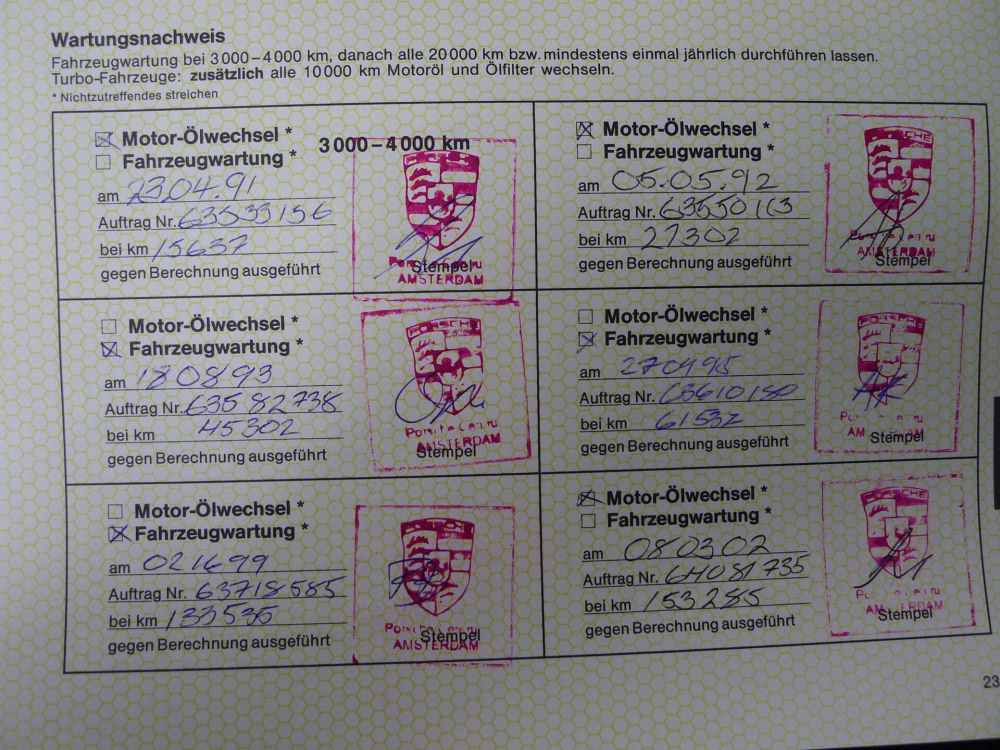 Wartungsnachweis
Fahrzeugwartung bei 3000–4000 km, danach alle 20000 km bzw. mindestens einmal jährlich durchführen lassen.
Turbo-Fahrzeuge: zusätzlich alle 10000 km Motoröl und Ölfilter wechseln.
* Nichtzutreffendes streichen
☒ Motor-Ölwechsel *
☐ Fahrzeugwartung * 3000–4000 km
am 23.04.91
Auftrag Nr. 63533156
bei km 15637
gegen Berechnung ausgeführt
Stempel
AMSTERDAM
☒ Motor-Ölwechsel *
☐ Fahrzeugwartung *
am 05.05.92
Auftrag Nr. 63550113
bei km 27302
gegen Berechnung ausgeführt
PORSCHE
AMSTERDAM
Stempel
☐ Motor-Ölwechsel *
☒ Fahrzeugwartung *
am 180893
Auftrag Nr. 63582738
bei km 45302
gegen Berechnung ausgeführt
PORSCHE
AMSTERDAM
Stempel
☐ Motor-Ölwechsel *
☒ Fahrzeugwartung *
am 270495
Auftrag Nr. 63610180
bei km 61532
gegen Berechnung ausgeführt
PORSCHE
Stempel
☐ Motor-Ölwechsel *
☒ Fahrzeugwartung *
am 021699
Auftrag Nr. 63718585
bei km 133535
gegen Berechnung ausgeführt
Stempel
AMSTERDAM
☒ Motor-Ölwechsel *
☐ Fahrzeugwartung *
am 080302
Auftrag Nr. 64081735
bei km 153285
gegen Berechnung ausgeführt
PORSCHE
AMSTERDAM
Stempel
23